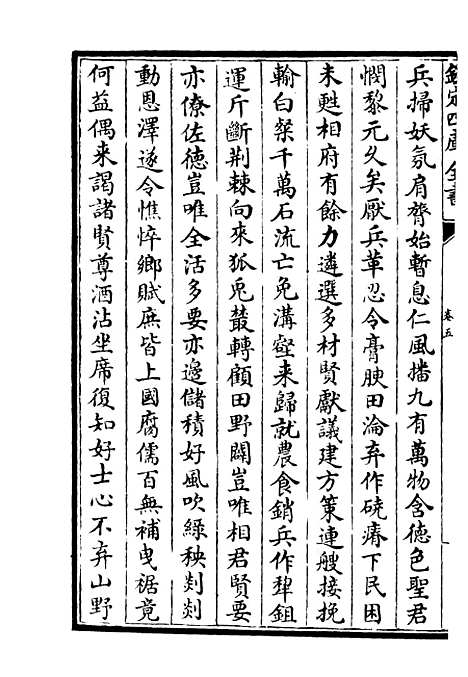 欽定四庫全書
卷五
兵掃妖氛肩膂始暫息仁風播九有萬物含徳色聖君
憫黎元久矣厭兵革忍令膏腴田淪弃作磽瘠下民困
未甦相府有餘力遴選多材賢獻議建方策連艘接挽
輸白粲千萬石流亡免溝壑来歸就農食銷兵作犂鉏
運斤斷荆棘向來狐兎叢轉顧田野闢豈唯相君賢要
亦僚佐徳豈唯全活多要亦邊儲積好風吹緑秧剡剡
動恩澤遂令憔悴鄉賦庶皆上國腐儒百無補曳裾竟
何益偶来謁諸賢尊酒沾坐席復知好士心不弃山野